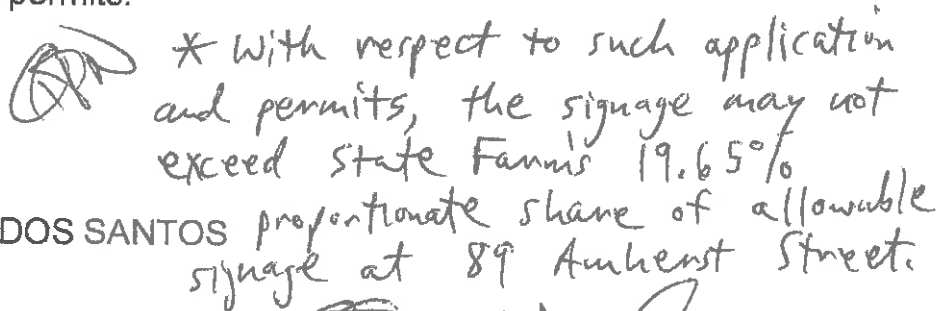 permits.
* With respect to such application
and permits, the signage may not
exceed State Farm's 19.65%
DOS SANTOS proportionate share of allowable
signage at 89 Amherst Street.